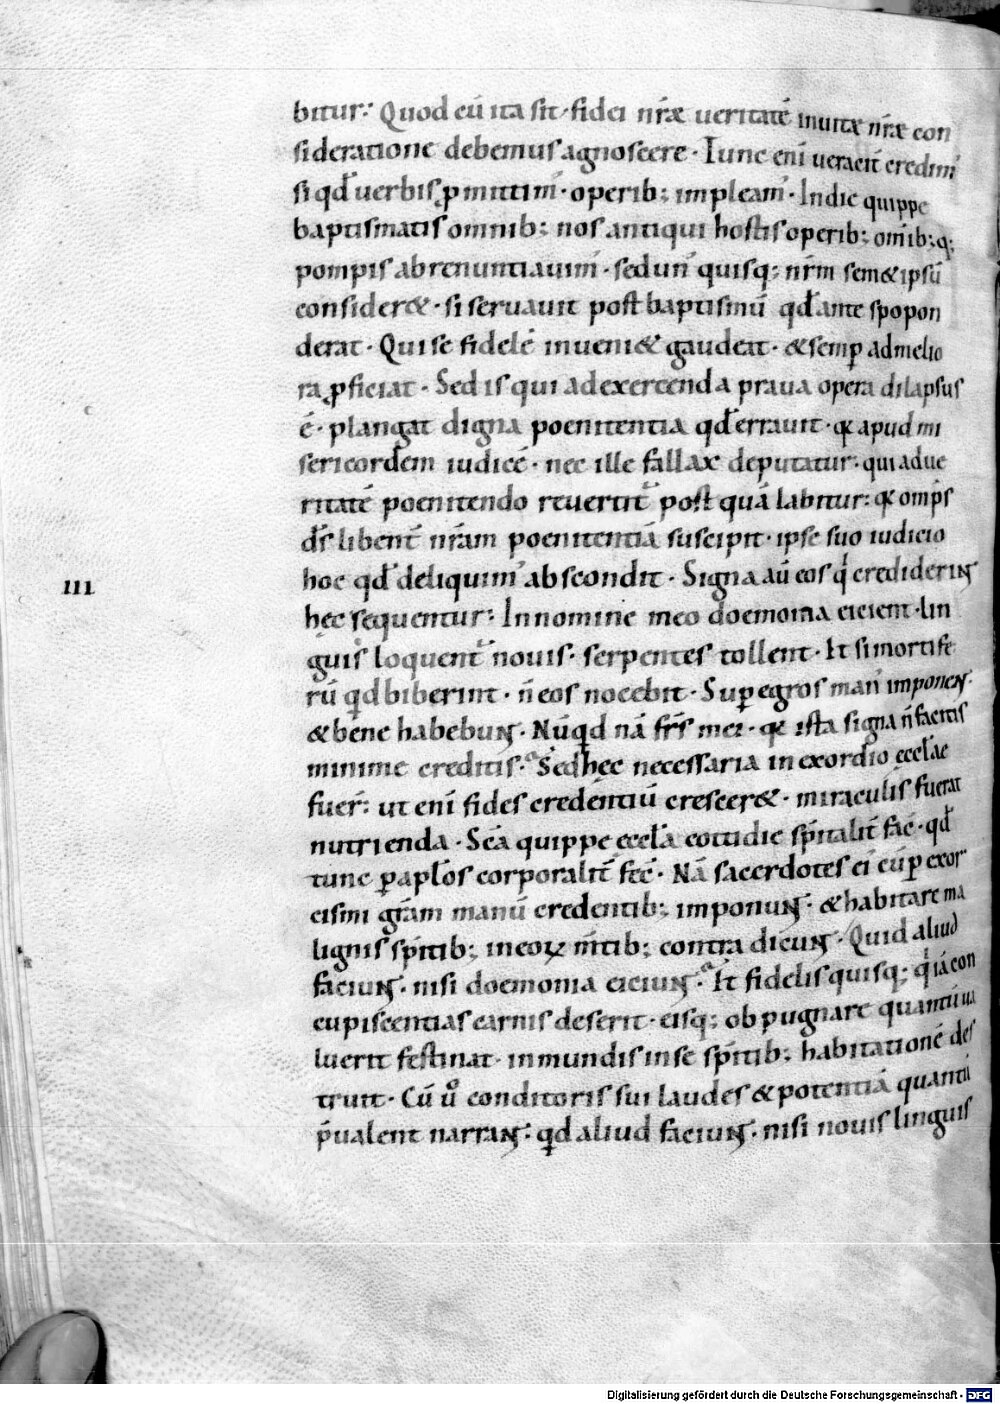 bitur: Quod cū ita sit · fidei nr̄ae ueritatē inuitae nr̄ae con
sideratione debemus agnoscere · Tunc eni ueracit̄ credim̄
si qd̄ uerbis ꝓmittim̄ · operib; impleam̄ · Indie quippe
baptismatis omnib; nos antiqui hostis operib; om̄ib;q;
pompis abrenuntiauim̄ · sed un̄ quisq; nr̄m sem&ipsū
consider& · si seruauit post baptismū qd̄ ante spopon
derat · Qui se fidelē inueni& gaudeat · & semꝑ admelio
ra ꝓficiat · Sed is qui ad exercenda praua opera dilapsus
ē · plangat digna poenitentia qd̄ errauit · q̄a apud mi
sericordem iudicē · nec ille fallax deputatur · qui adue
ritatē poenitendo reuertit᷑ post quā labitur: q̄a omp̄s
ds̄ libent̄ nr̄am poenitentiā suscipit · ipse suo iudicio
III hoc qd̄ deliquim̄ abscondit · Signa aū eos qͥ crediderint
hęc sequentur: In nomine meo doemonia eicient · lin
guis loquent᷑ nouis · serpentes tollent · Et si mortife
rū qͥd biberint · n̄ eos nocebit · Suꝑ egros man᷒ imponent ·
& bene habebunt · Nūqͥd nā frs̄ mei · q̄a ista signa n̄ facitis
minime creditis · Sed hęc necessaria in exordio ęccl̄ae
fuer̄: ut eni fides credentiū crescer& · miraculis fuerat
nutrienda · Sc̄a quippe eccl̄a cottidie sp̄italit̄ fac̄ · qd̄
tunc ꝑ apl̄os corporalit̄ fec̄ · Nā sacerdotes ei᷒ cū ꝑ exor
cismi gr̄am manū credentib; imponunt · & habitare ma
lignis sp̄itib; in eoꝝ m̄tib; contra dicunt · Quid aliud
faciunt · nisi doemonia eiciunt · Et fidelis quisq; qͥ iā con
cupiscentias carnis deserit · eisq; ob pugnare quantū ua
luerit festinat · inmundis in se sp̄itib; habitationē des
truit · Cū uͦ conditoris sui laudes & potentiā quantū
p̄ualent narrant · qͥd aliud faciunt · nisi nouis linguis
Digitalisierung gefördert durch die Deutsche Forschungsgemeinschaft - DFG